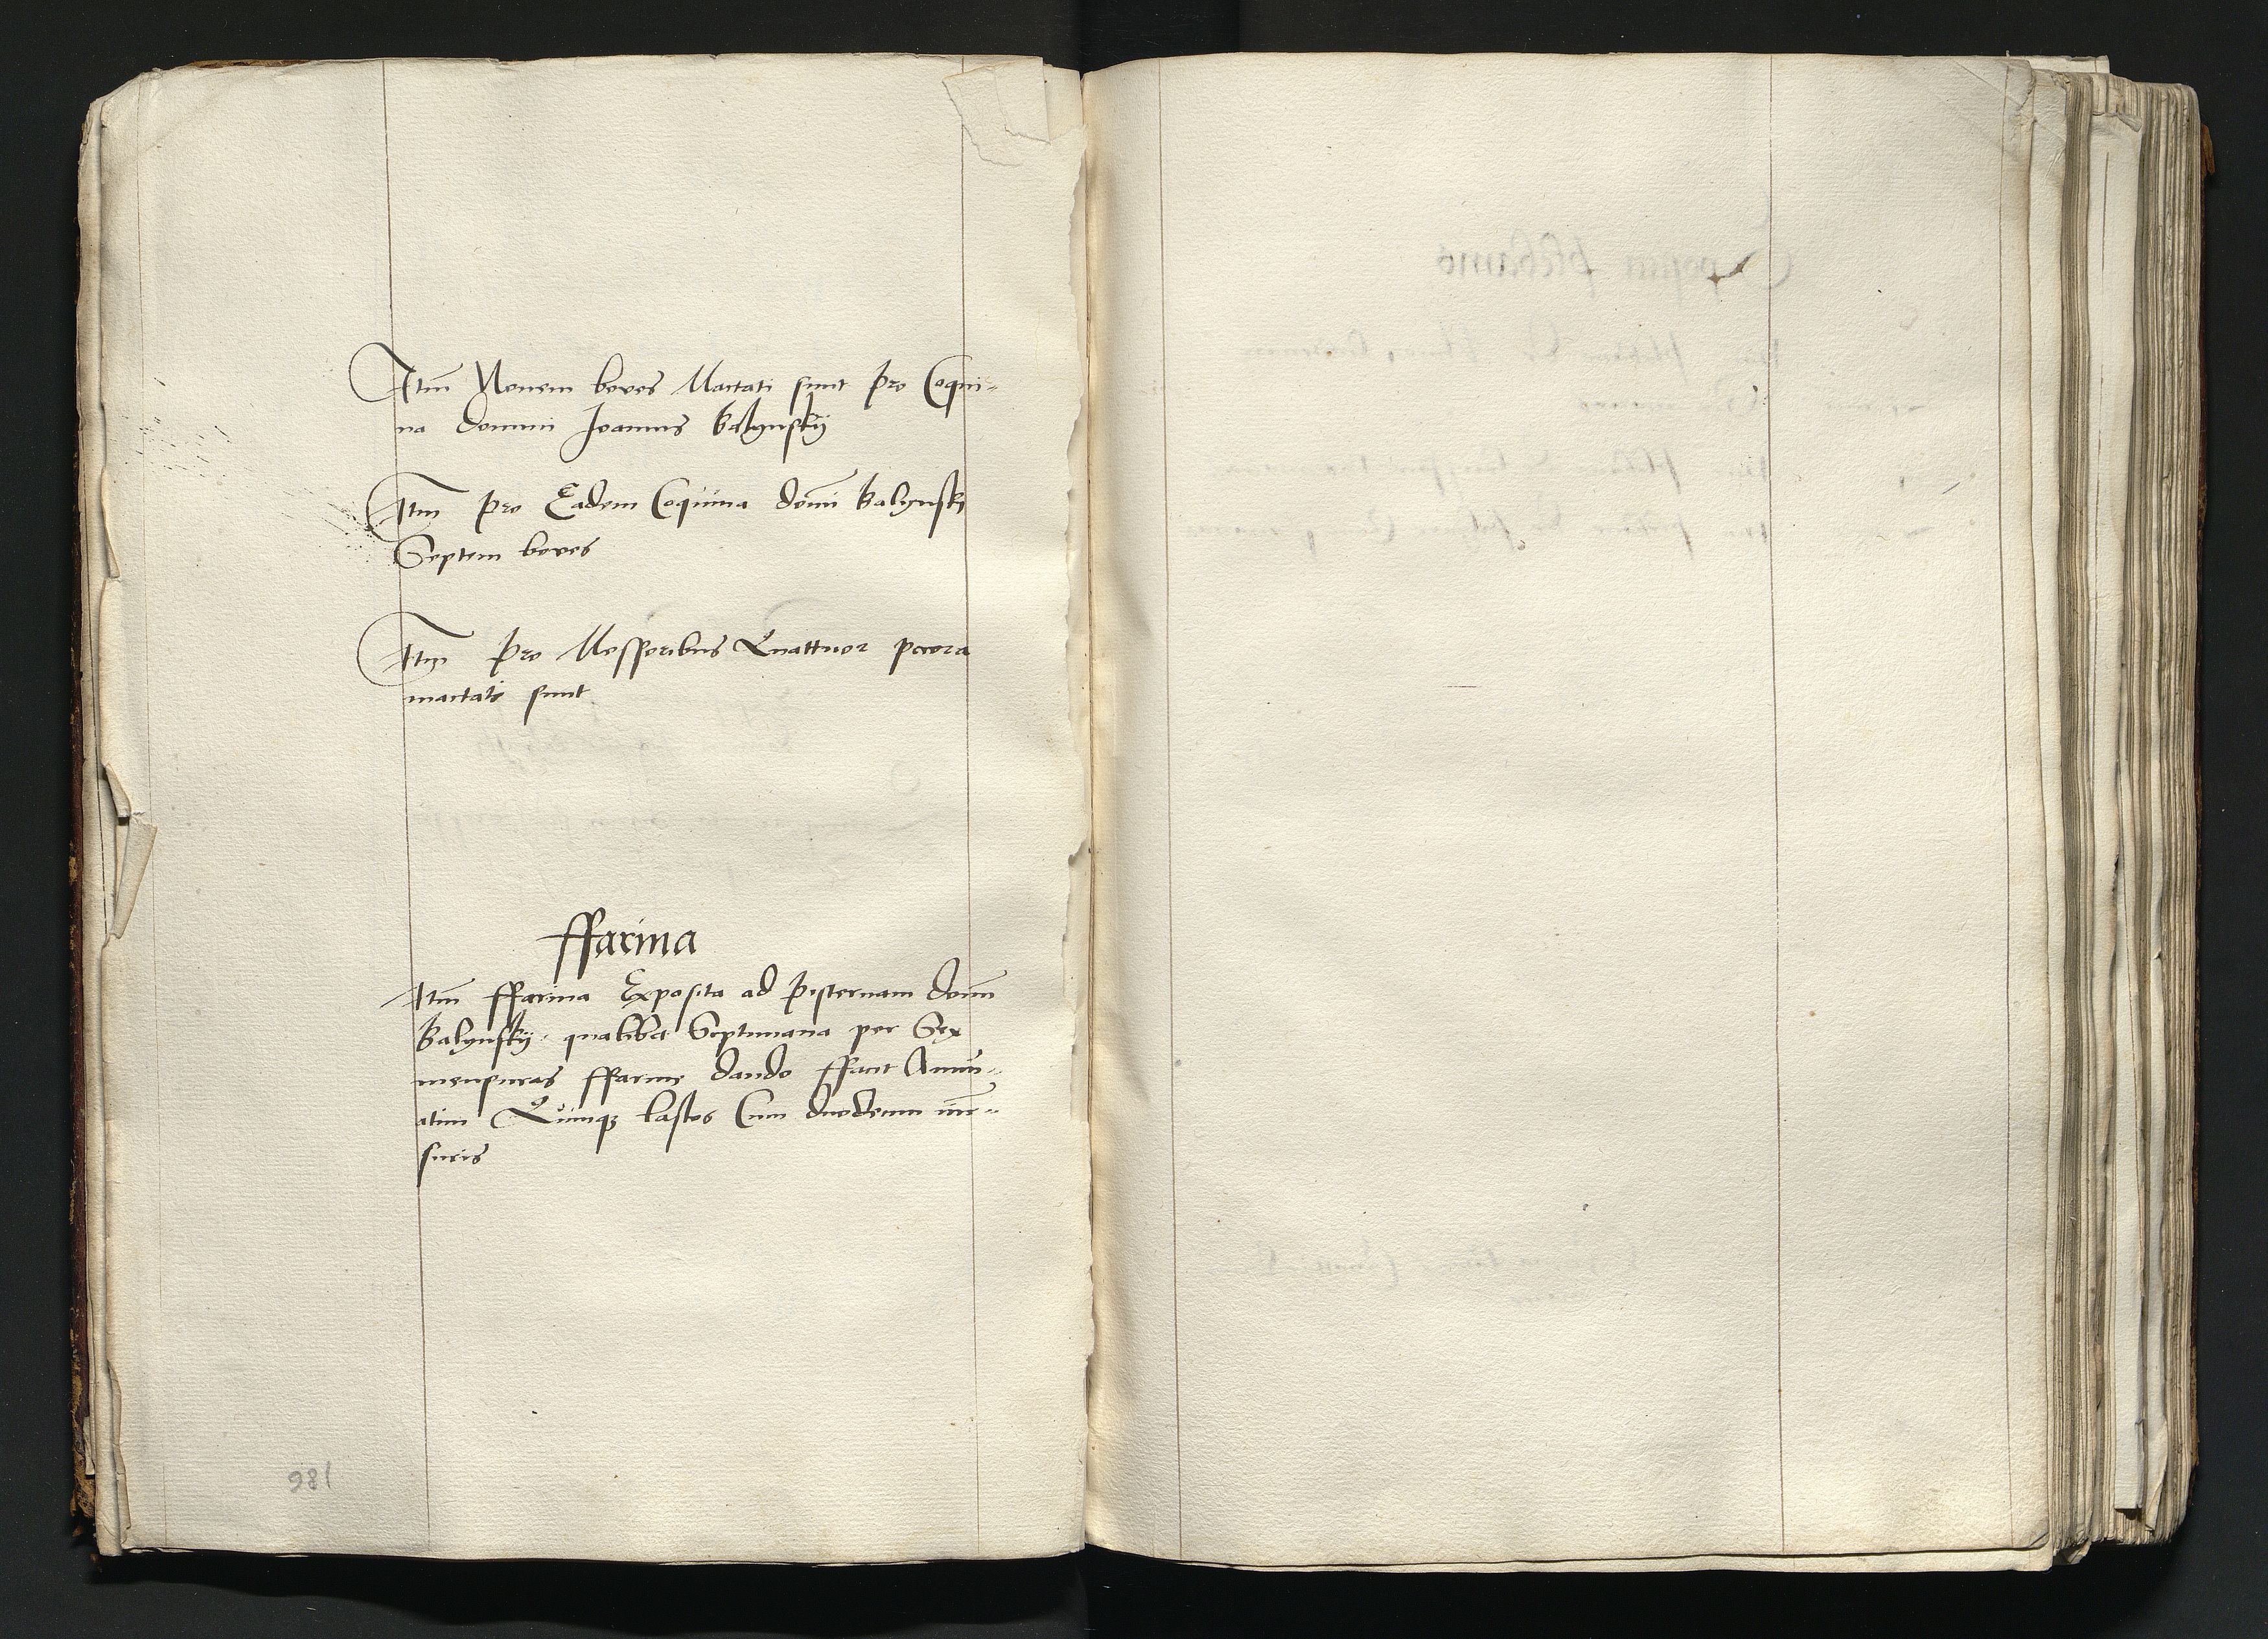 Itm Nouem boues Mactati sunt pro Coqui-
na domini Joannis Balynskÿ
Itm pro Eadem Coquina domi Balynskj
Septem boues
Itm pro Messoribus Quattuor pecora
mactati sunt
ffarina
Itm ffarina Exposita ad pisternam domi
Balynskÿ qualibet Septimana per Sex
mensuras ffarine dando ffacit Annu-
atim Quinqz lastos Cum duodecim men-
suris
186